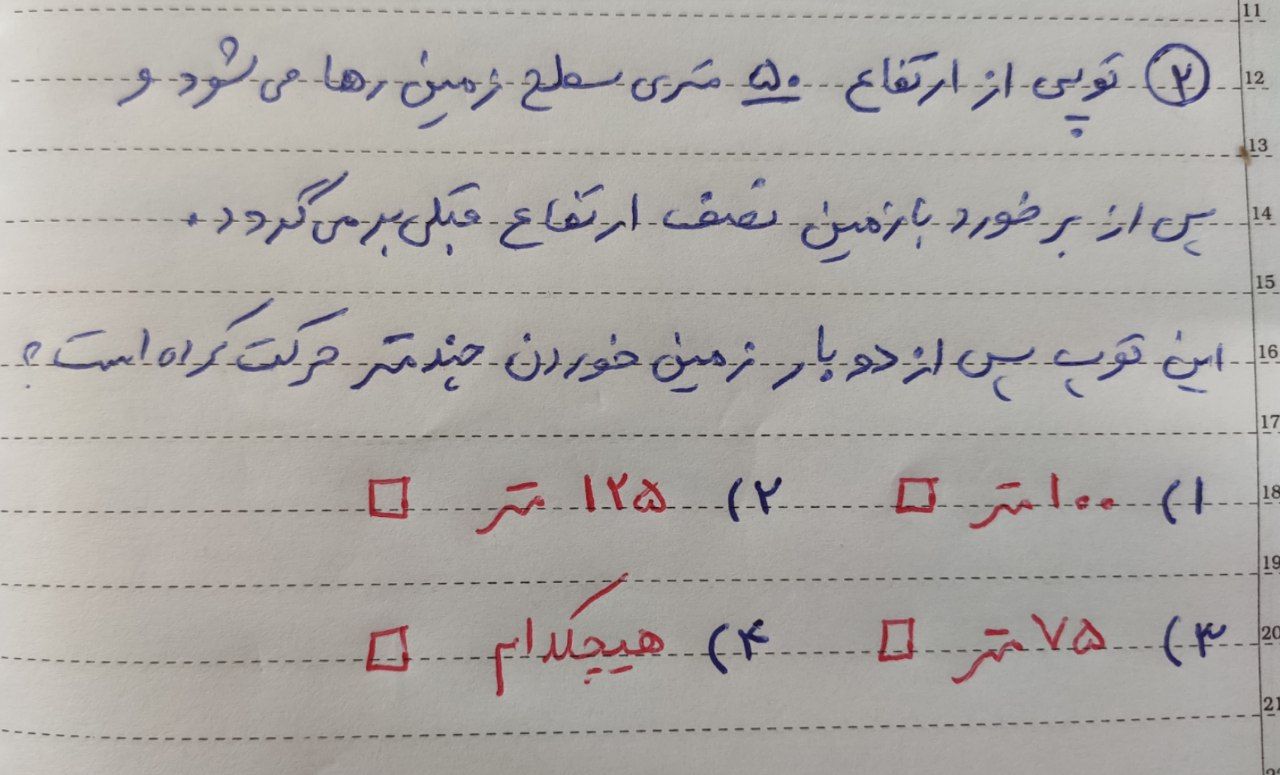 11
12
13
14
15
16
17
18
19
20
21
۲ توپی از ارتفاع ۵۰ متری سطح زمین رها می شود و
پس از برخورد با زمین نصف ارتفاع قبلی بر می گردد.
این توپ پس از دو بار زمین خوردن چند متر حرکت کرده است؟
۱) ۱۰۰ متر ۲) ۱۲۵ متر
۳) ۷۵ متر ۴) هیچکدام